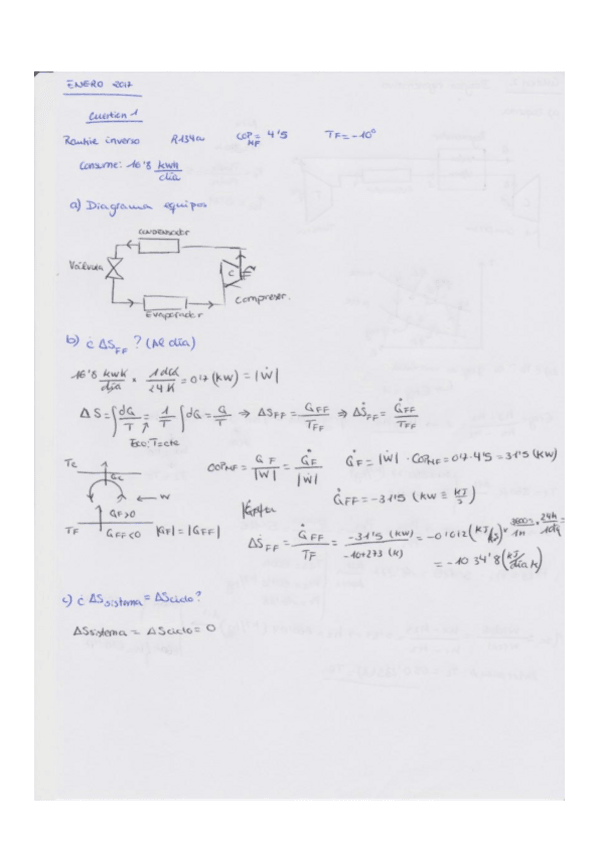 ENERO 2017
Cuestion 1
Rankine inverso R134a COP_MF = 4'5 TF = -10°
Consume: 16'8 kwh/día
a) Diagrama equipos
condensador
Válvula
C
compresor.
Evaporador
b) ¿ΔS_FF? (Al día)
16'8 kwh/día × 1 día/24 h = 0'7 (KW) = |Ẇ|
ΔS = ∫ dQ/T = 1/T ∫ dQ = Q/T ⇒ ΔS_FF = Q_FF/T_FF ⇒ ΔṠ_FF = Q̇_FF/T_FF
Eso; T=cte
Tc
Qc
W
QF>0
TF
QFF<0 |QF| = |QFF|
COP_MF = QF/|W| = Q̇F/|Ẇ| Q̇F = |Ẇ| · COP_MF = 0'7 · 4'5 = 3'15 (KW)
Q̇FF = -3'15 (KW ≡ KJ/s)
ΔṠ_FF = Q̇_FF/TF = -3'15 (KW)/-10+273 (K) = -0'012 (KJ/Ks) × 3600s/1h × 24h/1día =
= -1034'8 (KJ/día K)
c) ¿ΔSsistema = ΔSciclo?
ΔSsistema = ΔSciclo = 0